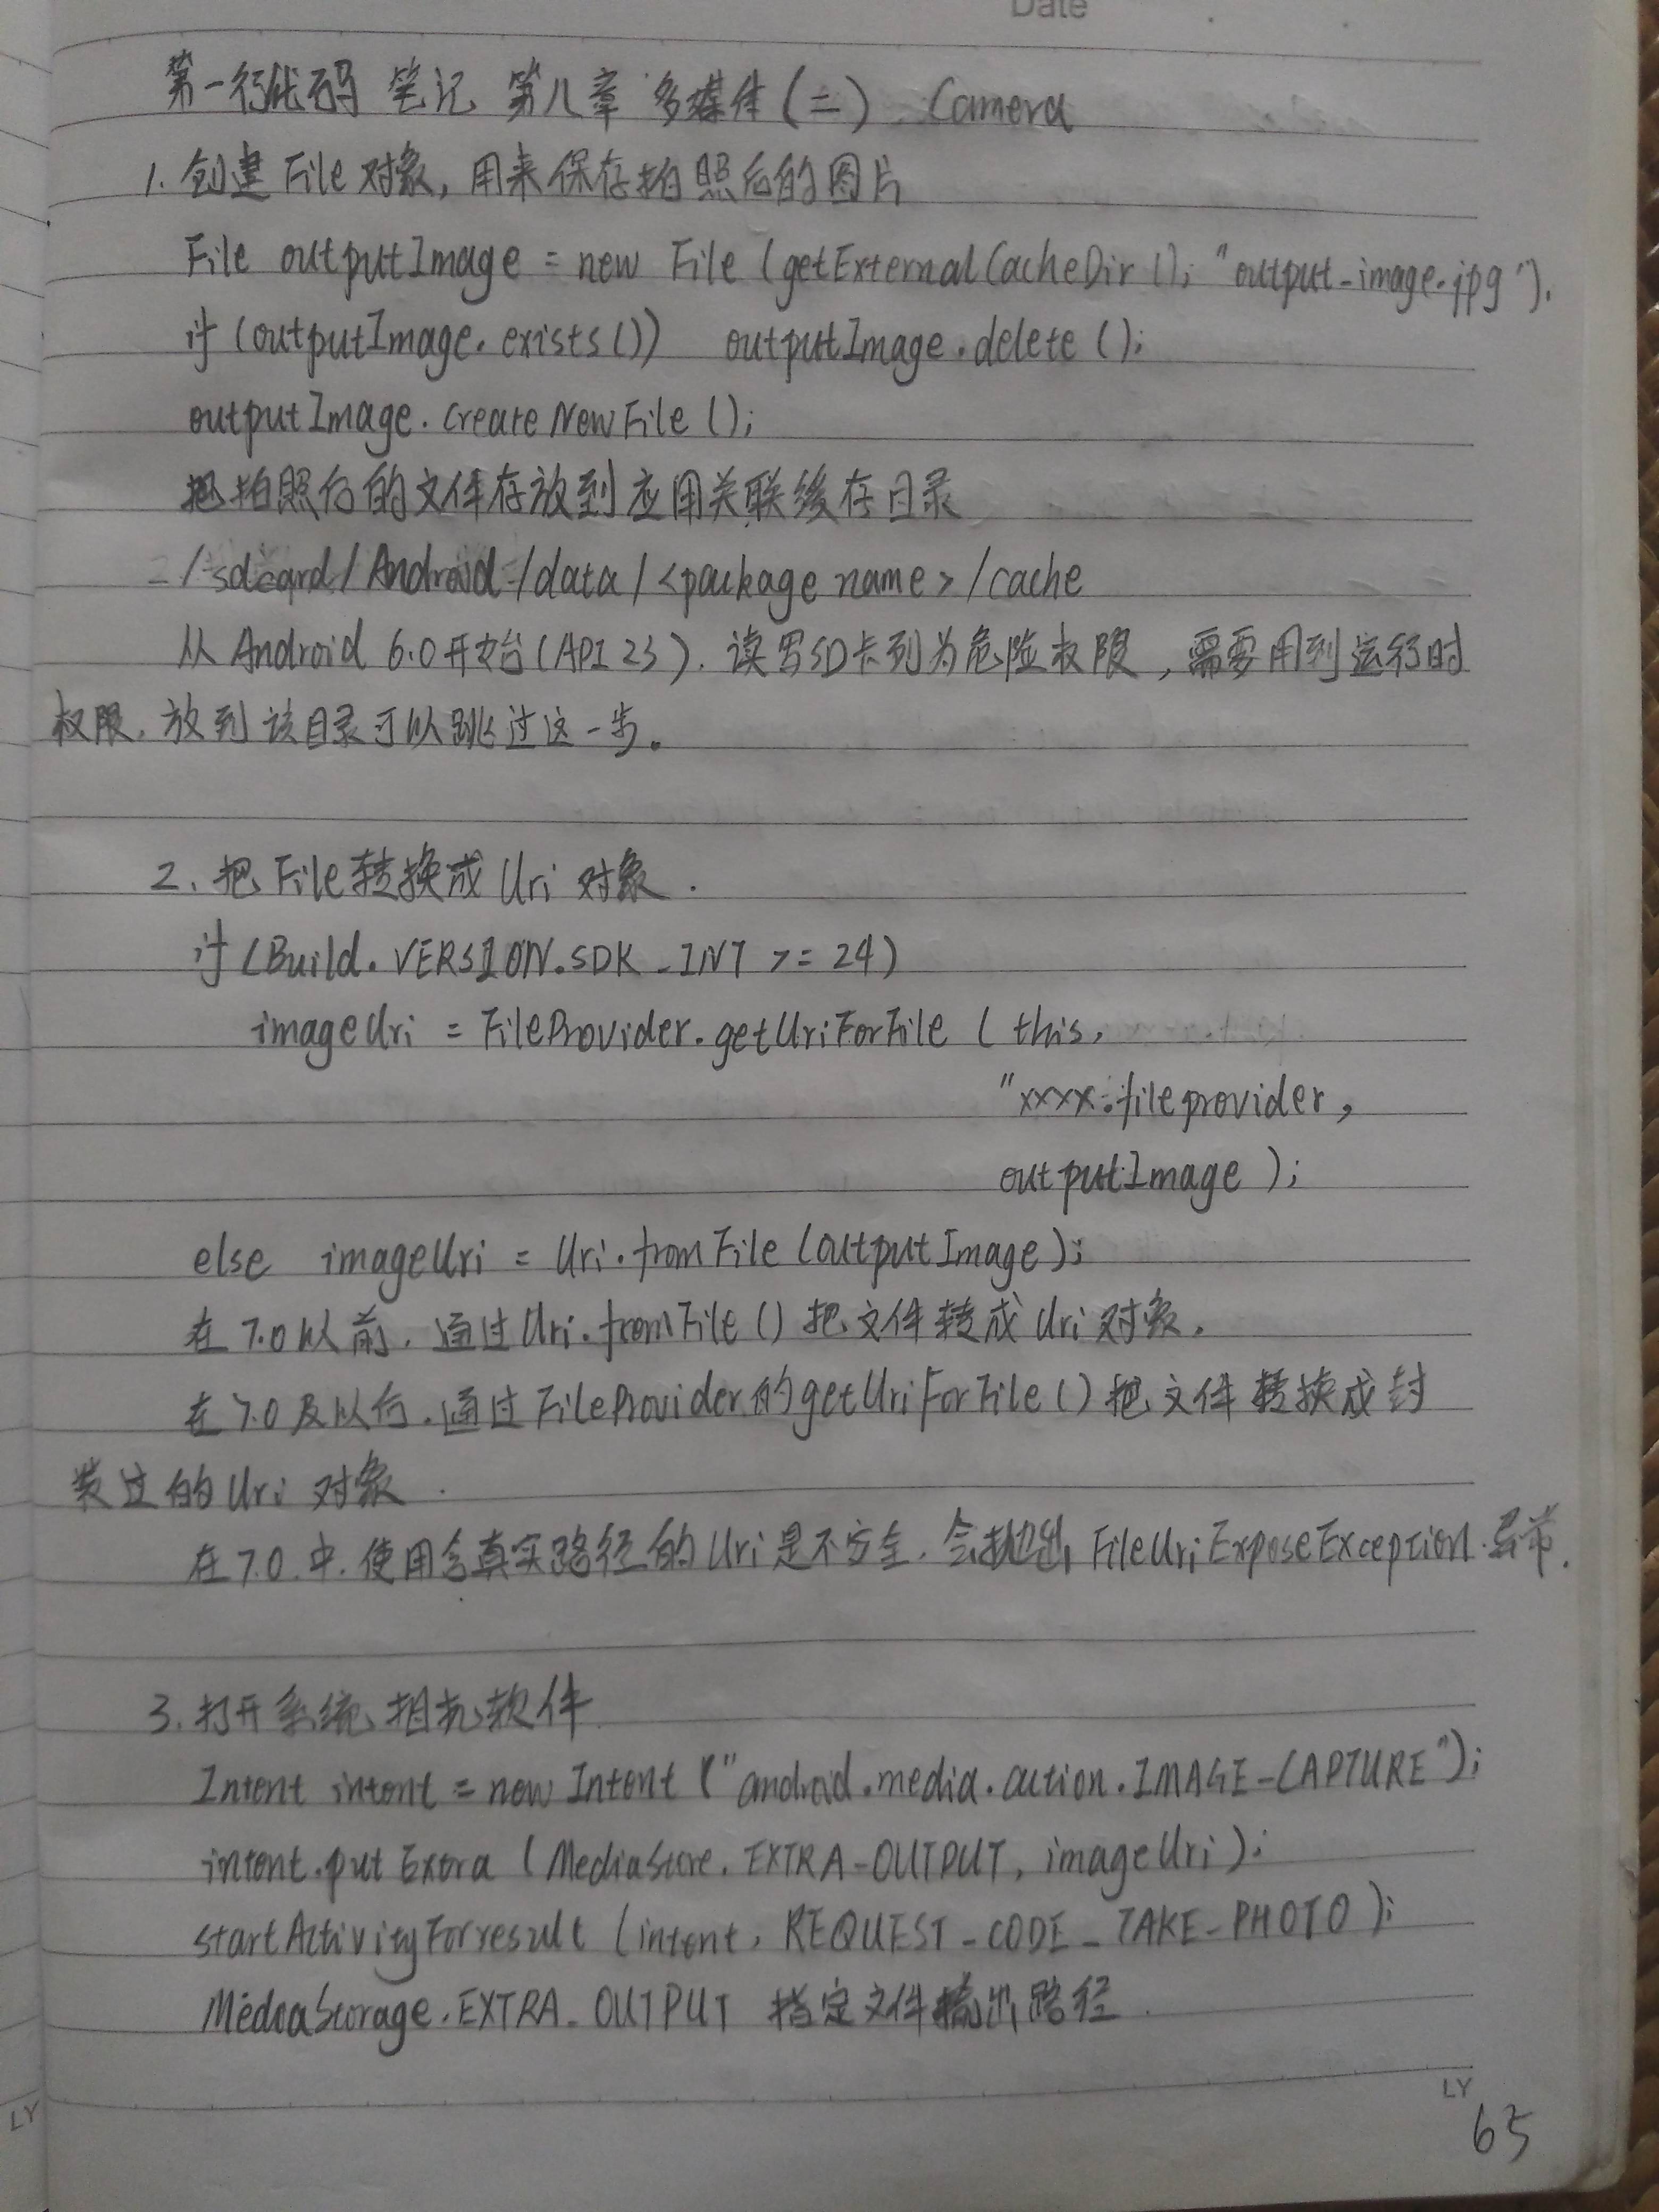 Date
第一行代码 笔记 第八章 多媒体(二) Camera
1. 创建File对象, 用来保存拍照后的图片
File outputImage = new File (getExternalCacheDir(); "output_image.jpg");
if (outputImage.exists()) outputImage.delete();
outputImage.createNewFile();
把拍照后的文件存放到应用关联缓存目录
/sdcard/Android/data/<package name>/cache
从Android 6.0开始(API 23), 读写SD卡列为危险权限, 需要用到运行时
权限, 放到该目录可以跳过这一步。
2. 把File转换成Uri对象.
if (Build.VERSION.SDK_INT >= 24)
imageUri = FileProvider.getUriForFile (this,
"xxxx.fileprovider,
outputImage);
else imageUri = Uri.fromFile (outputImage);
在7.0以前, 通过Uri.fromFile()把文件转成Uri对象.
在7.0及以后, 通过FileProvider的getUriForFile()把文件转换成封
装过的Uri对象.
在7.0中, 使用含真实路径的Uri是不安全, 会抛出FileUriExposeException异常.
3. 打开系统相机软件
Intent intent = new Intent ("android.media.action.IMAGE_CAPTURE");
intent.putExtra (MediaStore.EXTRA_OUTPUT, imageUri);
startActivityForresult (intent, REQUEST_CODE_TAKE_PHOTO);
MediaStorage.EXTRA_OUTPUT 指定文件输出路径.
LY
LY
65